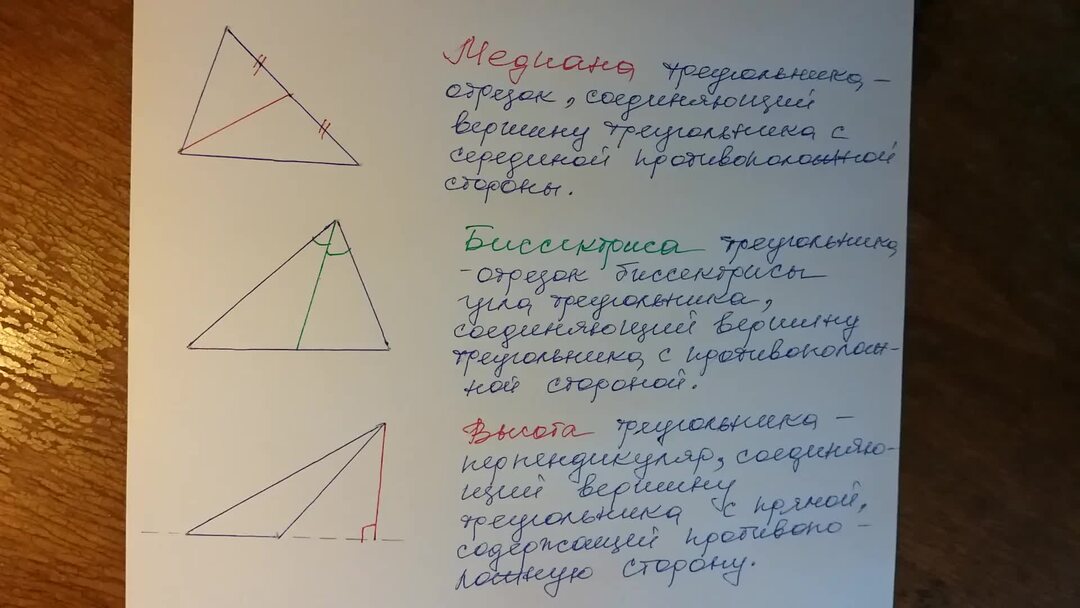 Медиана треугольника –
отрезок, соединяющий
вершину треугольника с
серединой противоположной
стороны.
Биссектриса треугольника
-отрезок биссектрисы
угла треугольника,
соединяющий вершину
треугольника с противополож-
ной стороной.
Высота треугольника –
перпендикуляр, соединяю-
щий вершину
треугольника с прямой,
содержащей противопо-
ложную сторону.